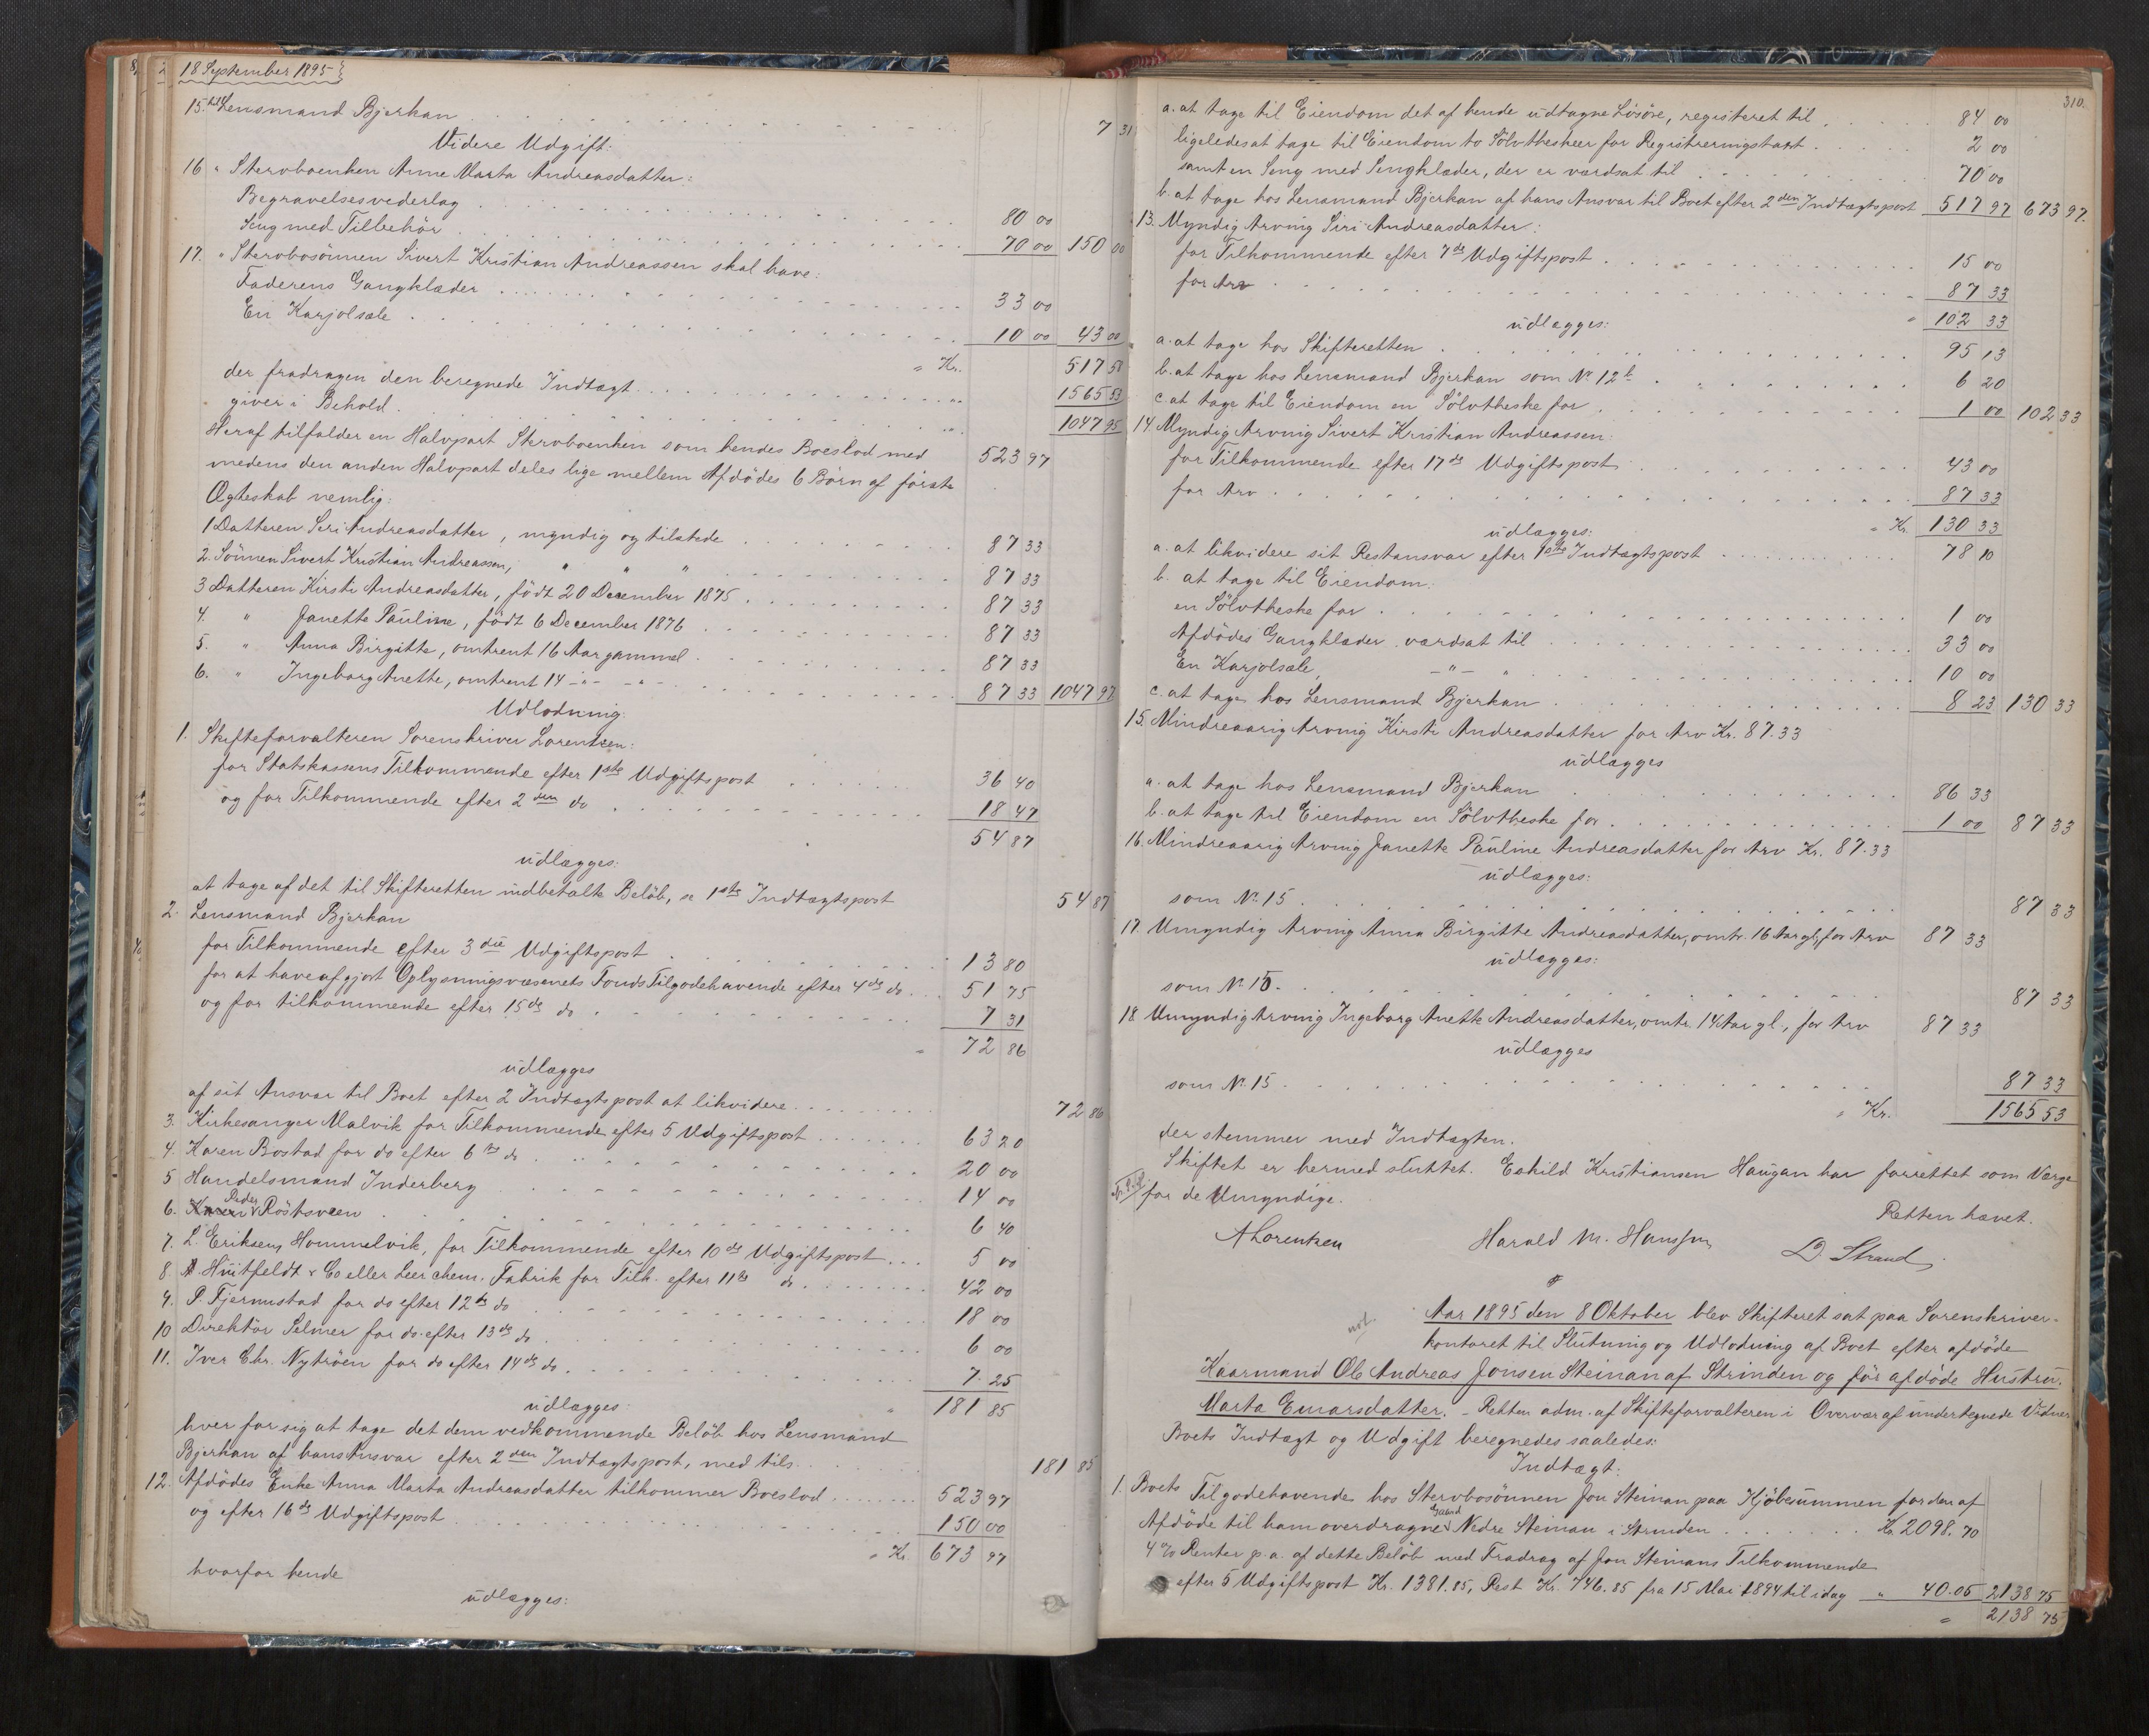 18 September 1895
15. til Lensmand Bjerkan . . . 7 31
Videre Udgift:
16 " Stervboenken Anne Marta Andreasdatter:
Begravelsesvederlag . . . 80 00
Seng med Tilbehör . . . 70 00 150 00
17. " Stervbosönnen Sivert Kristian Andreassen skal have:
Faderens Gangklæder . . . 33 00
En Karjolsæle . . . 10 00 43 00
" Kr. 517 58
der fradragen den beregnede Indtægt . . . " 1565 53
giver i Behold . . . " 1047 95
Heraf tilfalder en Halvpart Stervboenken som hendes Boeslod med 523 97
medens den anden Halvpart deles lige mellem Afdödes 6 Börn af förste
Ægteskab nemlig:
1 Datteren Siri Andreasdatter, myndig og tilstede . . . 87 33
2. Sönnen Sivert Kristian Andreassen, " " " . . . 87 33
3 Datteren Kirsti Andreasdatter, födt 20 December 1875 . . . 87 33
4. " Janette Pauline, födt 6 December 1876 . . . 87 33
5. " Anna Birgitte, omtrent 16 Aar gammel . . . 87 33
6. " Ingeborg Anette, omtrent 14 -"- -"- . . . 87 33 1047 97
Udlodning.
1. Skifteforvalteren Sorenskriver Lorentzen:
for Statskassens Tilkommende efter 1ste Udgiftspost . . . 36 40
og for Tilkommende efter 2den do . . . 18 47
54 87
udlægges:
at tage af det til Skifteretten indbetalte Belöb, se 1ste Indtægtspost 54 87
2. Lensmand Bjerkan
for Tilkommende efter 3die Udgiftspost . . . 13 80
for at have afgjort Oplysningsvæsenets Fonds Tilgodehavende efter 4de do . . . 51 75
og for tilkommende efter 15de do . . . 7 31
" 72 86
udlægges
af sit Ansvar til Boet efter 2 Indtægtspost at likvidere . . . 72 86
3. Kirkesanger Malvik for Tilkommende efter 5 Udgiftspost . . . 63 20
4. Karen Bostad for do efter 6te do . . . 20 00
5 Handelsmand Inderberg . . . 14 00
6. Karen Peder Röstsveen . . . 6 40
7. L. Eriksen, Hommelvik, for Tilkommende efter 10de Udgiftspost . . . 5 00
8. A Huitfeldt & Co eller Leer chem. Fabrik for Tilk. efter 11te do . . . 42 00
9. P. Fjermestad for do efter 12te do . . . 18 00
10 Direktör Selmer for do efter 13de do . . . 6 00
11. Iver Chr. Nytröen for do efter 14de do . . . 7. 25
udlægges: " 181 85
hver for sig at tage det dem vedkommende Belöb hos Lensmand
Bjerkan af hans Ansvar efter 2den Indtægtspost, med tils. . . . 181 85
12. Afdödes Enke Anna Marta Andreasdatter tilkommer Boeslod . . . 523 97
og efter 16de Udgiftspost . . . 150 00
" Kr. 673 97
hvorfor hende
udlægges:
310.
a. at tage til Eiendom det af hende udtagne Lösöre, registeret til . . . 84 00
ligeledes at tage til Eiendom to Sölvtheskeer for Registreringstaxt . . . 2 00
samt en Seng med Sengklæder, der er værdsat til . . . 70 00
b. at tage hos Lensmand Bjerkan af hans Ansvar til Boet efter 2den Indtægtspost 517 97 673 97.
13. Myndig Arving Siri Andreasdatter:
for Tilkommende efter 7de Udgiftspost . . . 15 00
for Arv . . . 87 33
udlægges: " 102 33
a. at tage hos Skifteretten . . . 95 13
b. at tage hos Lensmand Bjerkan som No 12b . . . 6 20
c. at tage til Eiendom en Sölvtheske for . . . 1 00 102 33
14. Myndig Arving Sivert Kristian Andreassen:
for Tilkommende efter 17de Udgiftspost . . . 43 00
for Arv . . . 87 33
udlægges: " Kr. 130 33
a. at likvidere sit Restansvar efter 1ste Indtægtspost . . . 78 10
b. at tage til Eiendom:
en Sölvtheske for . . . 1 00
Afdödes Gangklæder værdsat til . . . 33 00
En Karjolsæle, -"- " . . . 10 00
c. at tage hos Lensmand Bjerkan . . . 8 23 130 33
15. Mindreaarig Arving Kirsti Andreasdatter for Arv Kr. 87.33
udlægges
a. at tage hos Lensmand Bjerkan . . . 86 33
b. at tage til Eiendom en Sölvtheske for . . . 1 00 87 33
16. Mindreaarig Arving Janette Pauline Andreasdatter for Arv Kr. 87.33
udlægges:
som No 15 . . . 87 33
17. Umyndig Arving Anna Birgitte Andreasdatter, omtr. 16 Aar gl, for Arv 87 33
udlægges:
som No 15. . . . 87 33
18 Umyndig Arving Ingeborg Anette Andreasdatter, omtr. 14 Aar gl., for Arv 87 33
udlægges
som No 15 . . . 87 33
" Kr. 1565 53
der stemmer med Indtægten.
Skiftet er hermed sluttet. Eskild Kristiansen Haugan har forrettet som Værge
for de Umyndige.
Retten hævet.
A Lorentzen Harald M. Hansen D. Strand
Aar 1895 den 8 Oktober blev Skifteret sat paa Sorenskriver-
kontoret til Slutning og Udlodning af Boet efter afdöde
Kaarmand Ole Andreas Jonsen Steinan af Strinden og för afdöde Hustru
Marta Einarsdatter. - Retten adm. af Skifteforvalteren i Overvær af undertegnede Vidner
Boets Indtægt og Udgift beregnedes saaledes:
Indtægt:
1. Boets Tilgodehavende hos Stervbosönnen Jon Steinan paa Kjöbesummen for den af
Afdöde til ham overdragne Gaard Nedre Steinan i Strinden . . . Kr. 2098. 70
4 % Renter p. a. af dette Belöb med Fradrag af Jon Steinans Tilkommende
efter 5 Udgiftspost Kr. 1381.85, Rest Kr. 746.85 fra 15 Mai 1894 til idag " 40.05 2138 75
" 2138 75